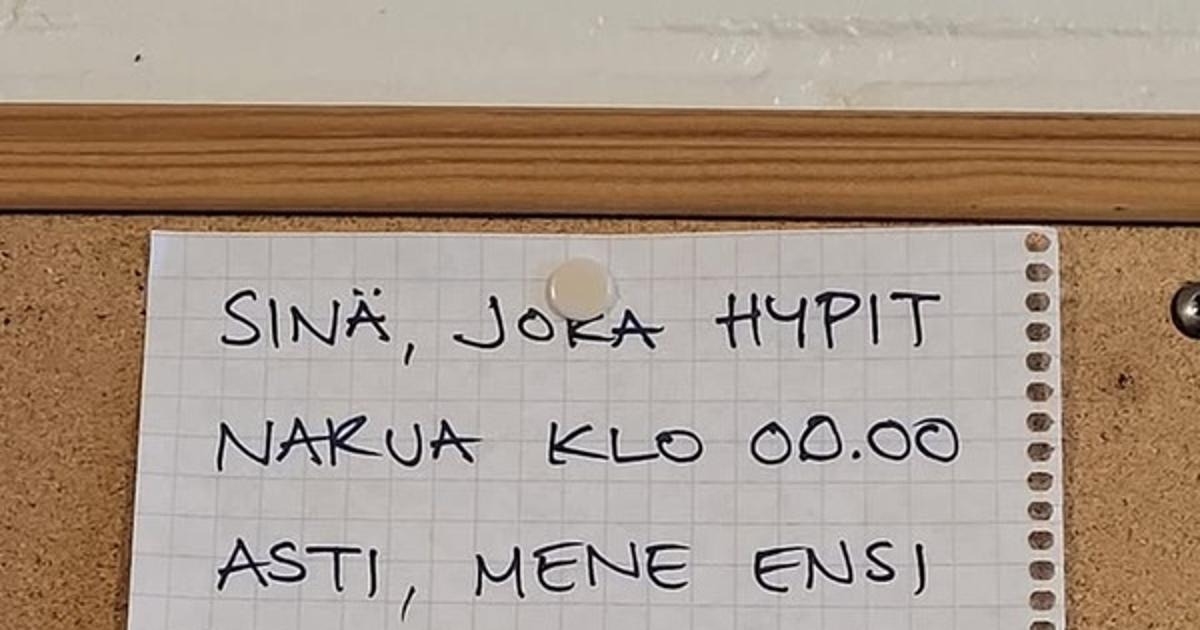 SINÄ, JOKA HYPIT
NARUA KLO 00.00
ASTI, MENE ENSI